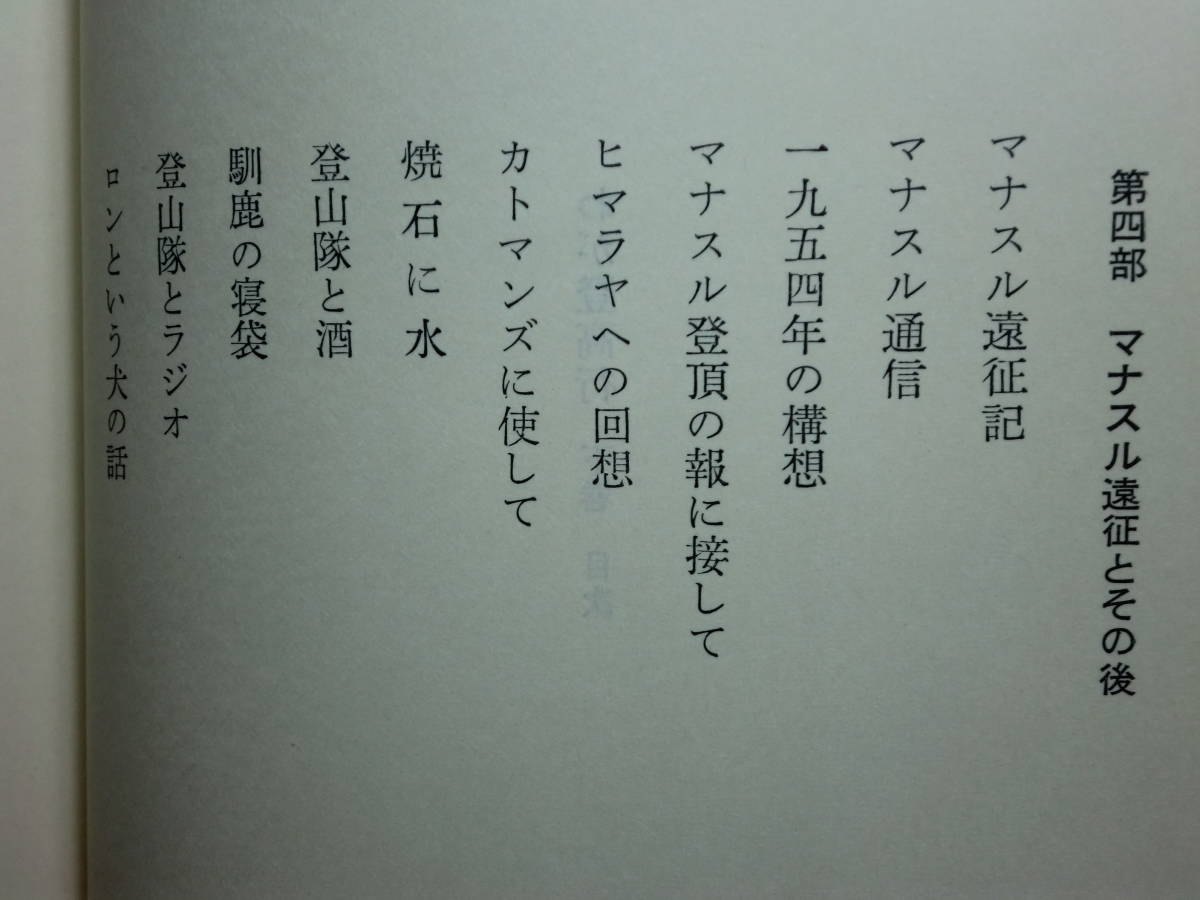 第四部 マナスル遠征とその後
マナスル遠征記
マナスル通信
一九五四年の構想
マナスル登頂の報に接して
ヒマラヤへの回想
カトマンズに使して
焼石に水
登山隊と酒
馴鹿の寝袋
登山隊とラジオ
ロンという犬の話